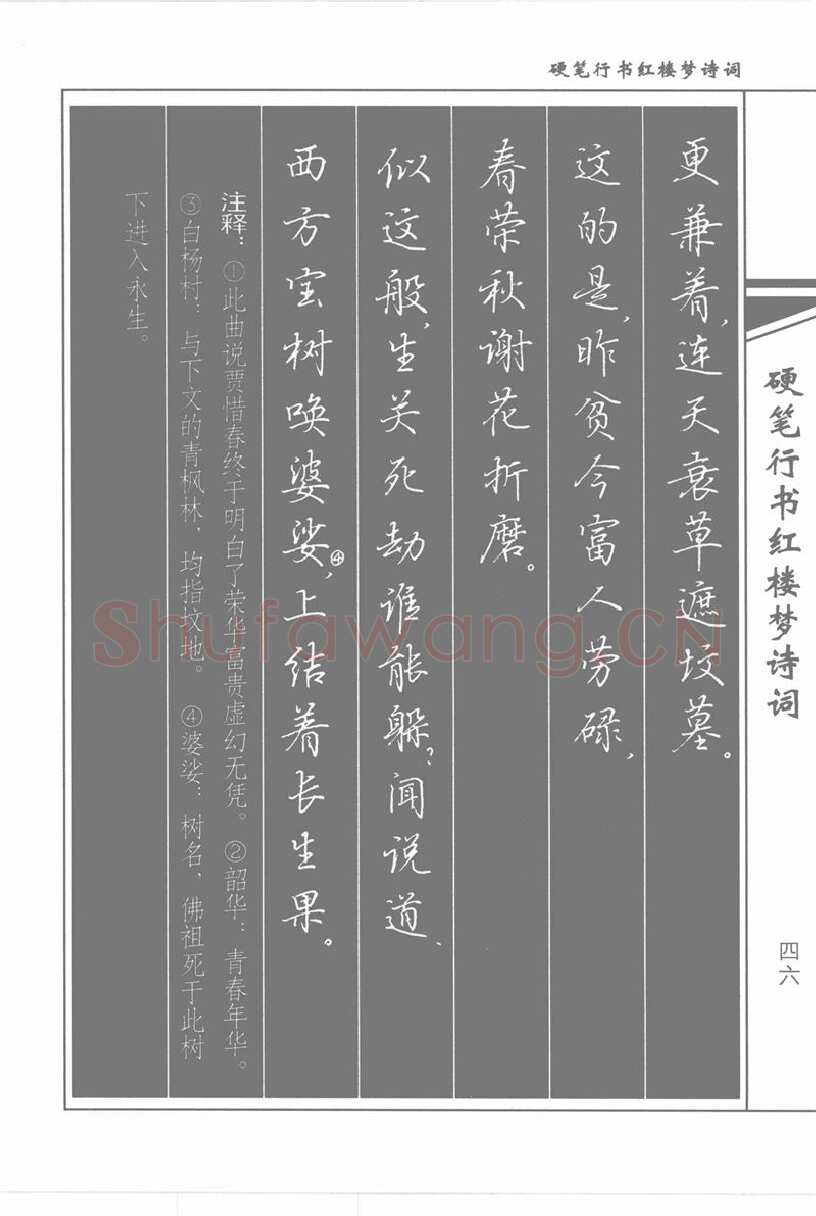 硬笔行书红楼梦诗词
更兼着,连天衰草遮坟墓。
这的是,昨贫今富人劳碌,
春荣秋谢花折磨。
似这般,生关死劫谁能躲?闻说道、
西方宝树唤婆娑④,上结着长生果。
注释:①此曲说贾惜春终于明白了荣华富贵虚幻无凭。②韶华:青春年华。
③白杨村:与下文的青枫林,均指坟地。④婆娑:树名、佛祖死于此树
下进入永生。
硬笔行书红楼梦诗词
四六
Shufawang.CN